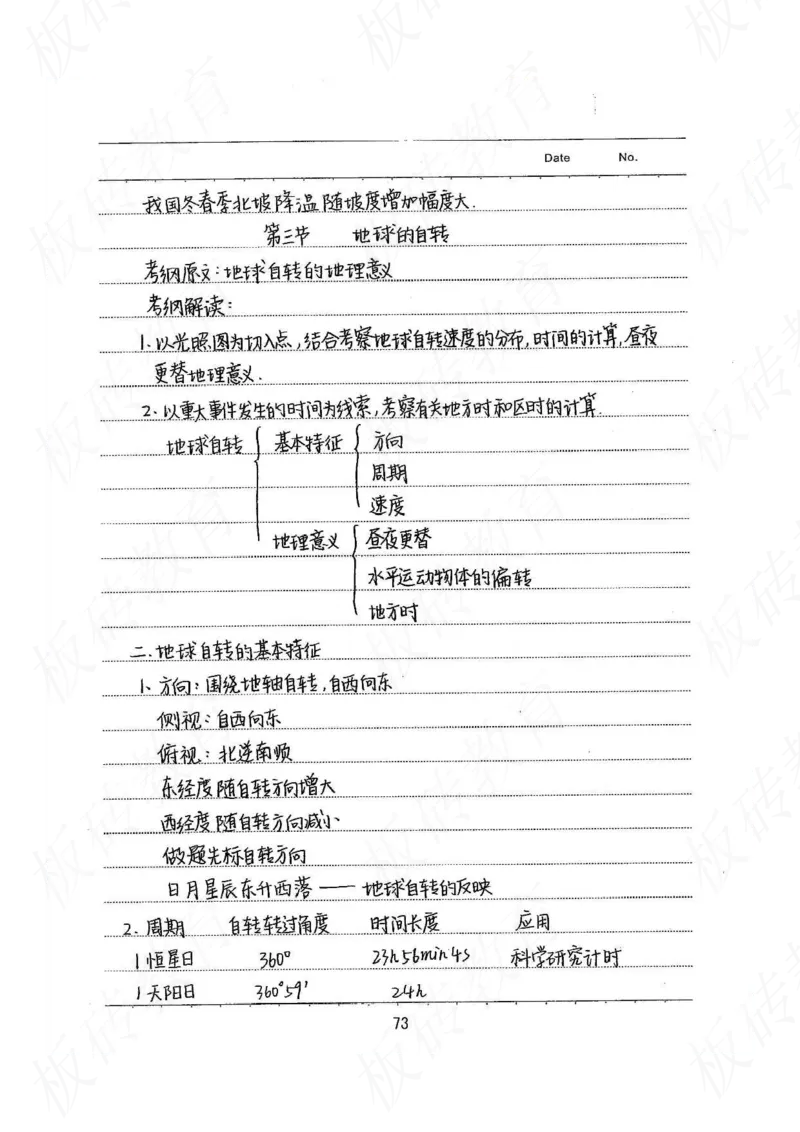 Date No.
我国冬春季北坡降温随坡度增加幅度大.
第三节 地球的自转
考纲原文:地球自转的地理意义
考纲解读:
1.以光照图为切入点,结合考察地球自转速度的分布,时间的计算,昼夜
更替地理意义.
2.以重大事件发生的时间为线索,考察有关地方时和区时的计算.
地球自转 基本特征 方向
周期
速度
地理意义 昼夜更替
水平运动物体的偏转
地方时
二.地球自转的基本特征
1.方向:围绕地轴自转,自西向东
侧视:自西向东
俯视:北逆南顺
东经度随自转方向增大
西经度随自转方向减小
做题先标自转方向
日月星辰东升西落——地球自转的反映
2.周期 自转转过角度 时间长度 应用
1恒星日 360° 23h56min4s 科学研究计时
1天阳日 360°59' 24h
73
板砖教育